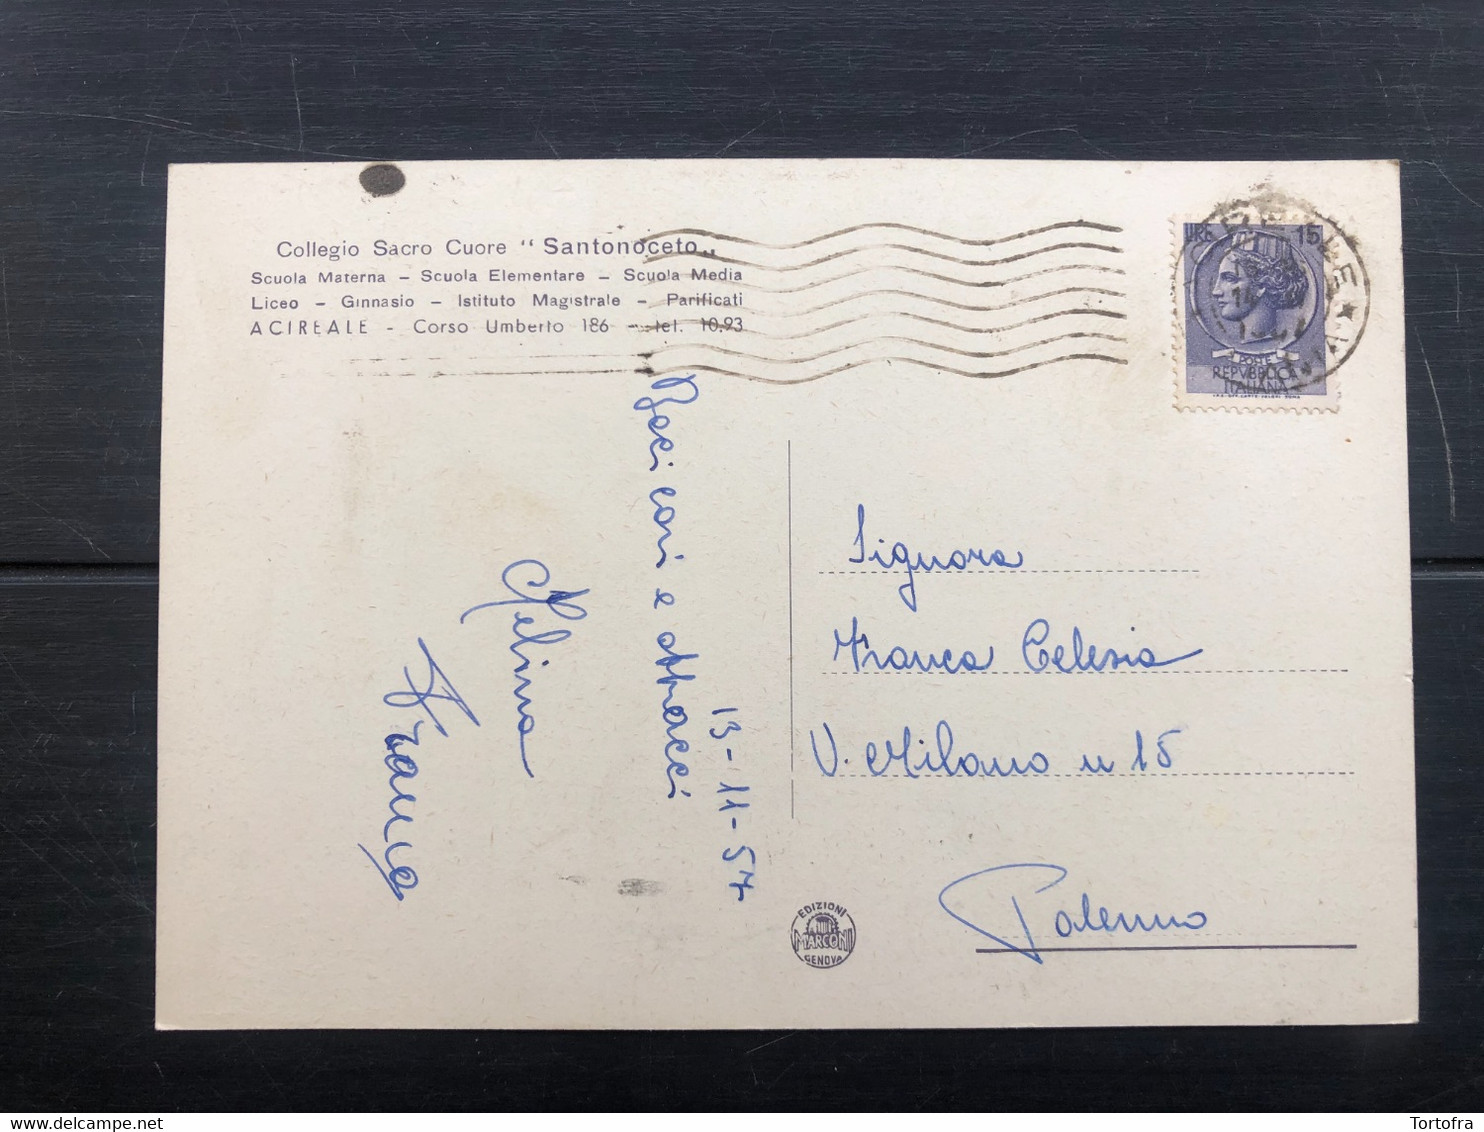 Collegio Sacro Cuore "Santonoceto„
Scuola Materna – Scuola Elementare – Scuola Media
Liceo – Ginnasio – Istituto Magistrale – Parificati
ACIREALE - Corso Umberto 186 - tel. 10.93
LIRE 15
POSTE
REPVBBLICA
ITALIANA
13-11-54
Baci cari e abbracci
Melina
Franco
Signora
Franca Celesia
V. Milano n 15
Palermo
EDIZIONI
MARCONI
GENOVA
Tortofra